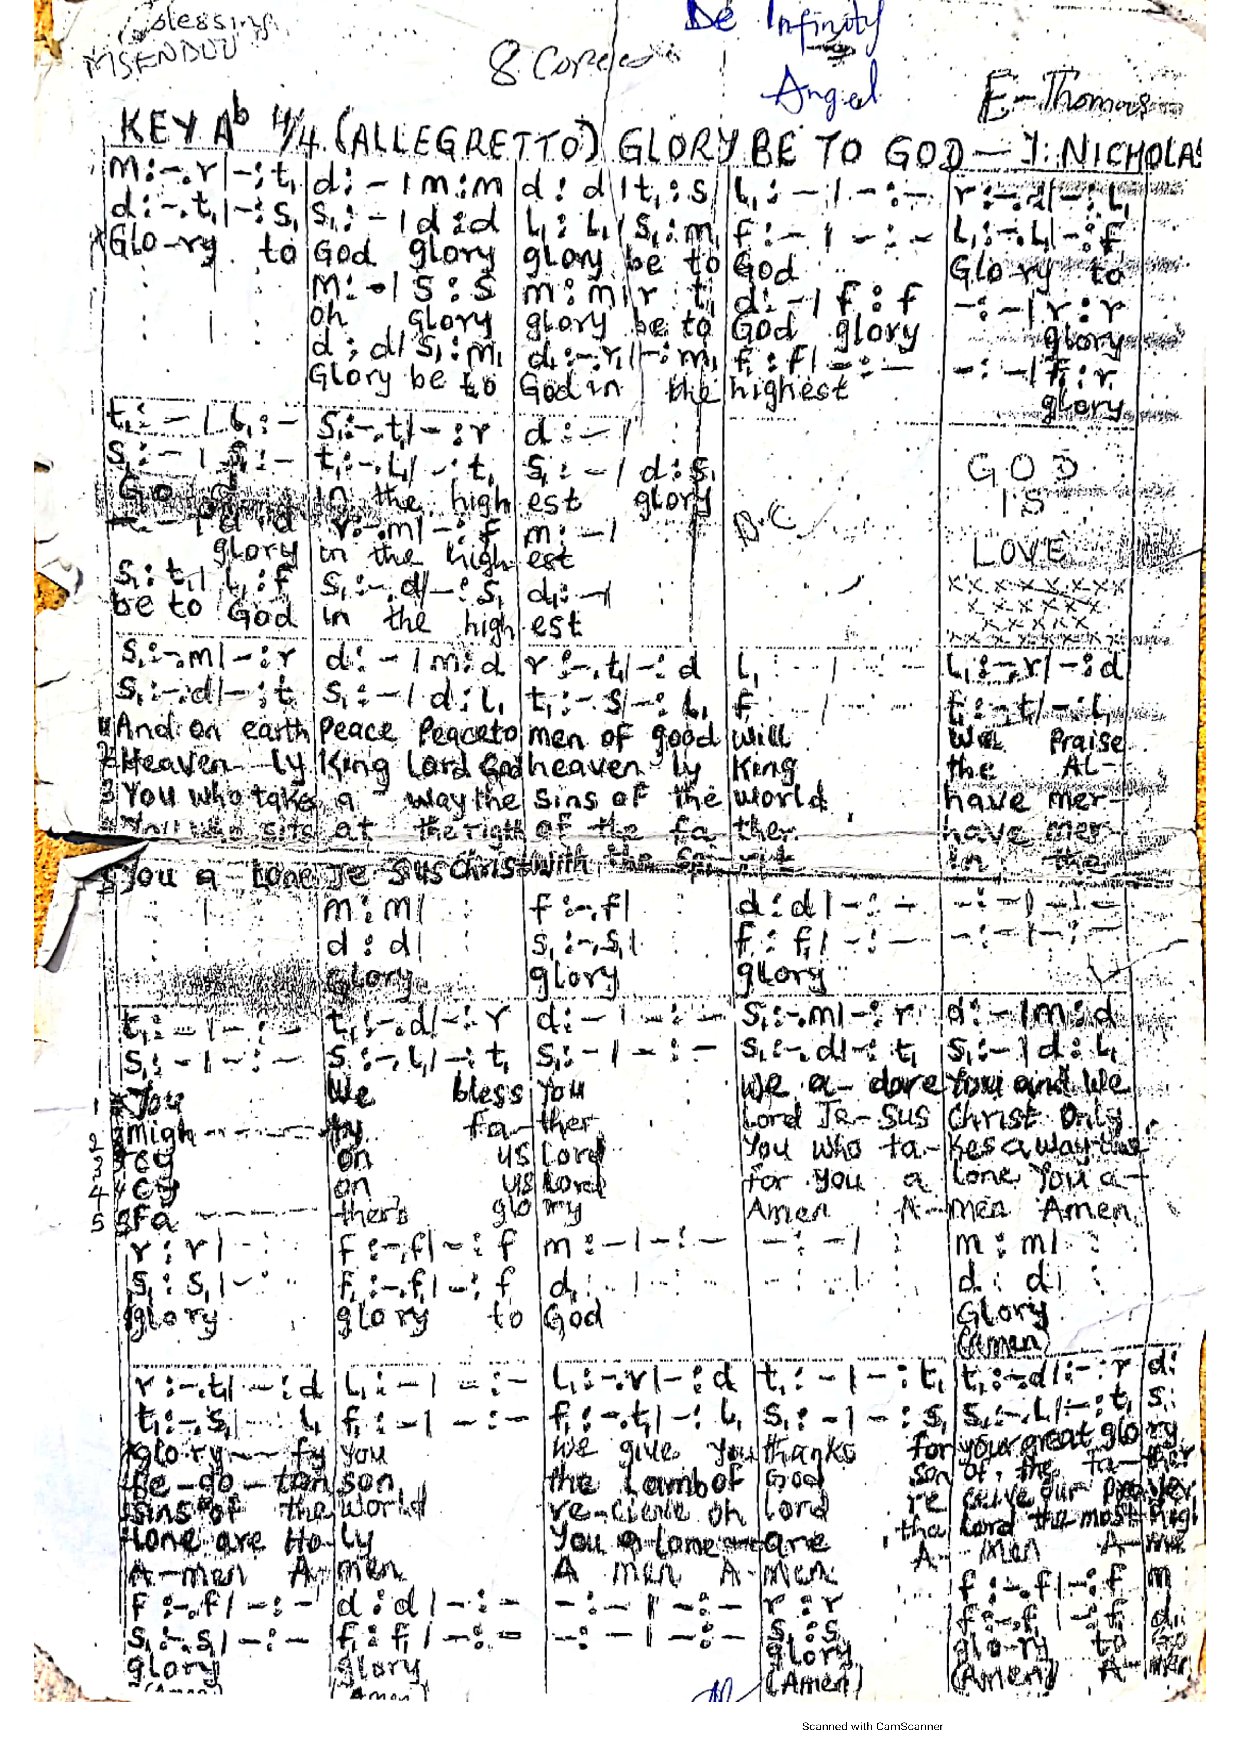 Blessing
MSENDOU
De Infinity
8 Copies
Angel
E-Thomas
KEY Ab 4/4 (ALLEGRETTO) GLORY BE TO GOD — J. NICHOLAS
m:-.r|-:t₁ d:-|m:m d:d|t₁:s₁ l₁:-|-:- r:-.d|-:l₁
d:-.t₁|-:s₁ s₁:-|d:d l₁:l₁|s₁:m₁ f:-|-:- l₁:-.l₁|-:f
Glo-ry to God glory glory be to God Glo ry to
m:-|s:s m:m|r t₁ d:-|f:f -:-|r:r
oh glory glory be to God glory glory
d:d|s₁:m₁ d:-.r₁|-:m₁ f₁:f|-:- -:-|f:r
Glory be to God in the highest glory
t₁:-|l₁:- s₁:-.t₁|-:r d:-|
s₁:-|s₁:- t₁:-.l₁|-:t₁ s₁:-|d:s₁ GOD
God in the high est glory IS
-:-|d:d r:-.m|-:f m:-| D.C
glory in the high est LOVE
s₁:t₁|l₁:f s₁:-.d|-:s₁ d₁:-|
be to God in the high est
s₁:-.m|-:r d:-|m:d r:-.t₁|-:d l₁:-|-:- l₁:-.r|-:d
s₁:-.d|-:t s₁:-|d:l₁ t₁:-.s|-:l₁ f:-|-:- f:-.t₁|-:l₁
1 And on earth Peace Peace to men of good will We Praise
2 Heaven-ly King Lord God heaven ly King the Al-
3 You who take a way the sins of the world have mer-
You who sits at the right of the fa ther have mer-
5 You a-lone Je sus Christ with the in the
m:m| f:-.f| d:d|-:- -:-|-:-
d:d| s₁:-.s₁| f:f₁|-:- -:-|-:-
glory glory glory
t₁:-|-:- t₁:-.d|-:r d:-|-:- s₁:-.m|-:r d:-|m:d
s₁:-|-:- s₁:-.l₁|-:t₁ s₁:-|-:- s₁:-.d|-:t₁ s₁:-|d:l₁
1 You We bless You We a-dore You and We
2 migh ty Fa-ther Lord Je-sus Christ Only
3 cy on us Lord You who ta-kes away the
4 cy on us Lord for you a lone You a-
5 Fa ther's glo ry Amen A-men Amen
r:r|-: f:-.f|-:f m:-|-:- -:-| m:m|
s₁:s₁|-: f₁:-.f₁|-:f d₁: -:-| d:d|
glory glory to God Glory
(Amen)
r:-.t₁|-:d l₁:-|-:- l₁:-.r|-:d t₁:-|-:t₁ t₁:-.d|-:r d:
t₁:-.s₁|-:l₁ f₁:-|-:- f₁:-.t₁|-:l₁ s₁:-|-:s₁ s₁:-.l₁|-:t₁ s:
glo-ry--fy you We give you thanks for your great glory
son the Lamb of God son of the fa-ther
sins of the world re-cieve oh Lord re cieve our prayer
lone are Ho-ly You a lone are the Lord the most High
A-men A-men A men A-men A-men A-me
f:-.f|-:- d:d|-:- -:-|-:- r:r f:-.f|-:f m
s₁:-.s₁|-:- f₁:f₁|-:- -:-|-:- s:s f:-.f|-:f d:
glory glory glory glo-ry to Go
(Amen) (Amen) (Amen) (Amen) A-men
Scanned with CamScanner